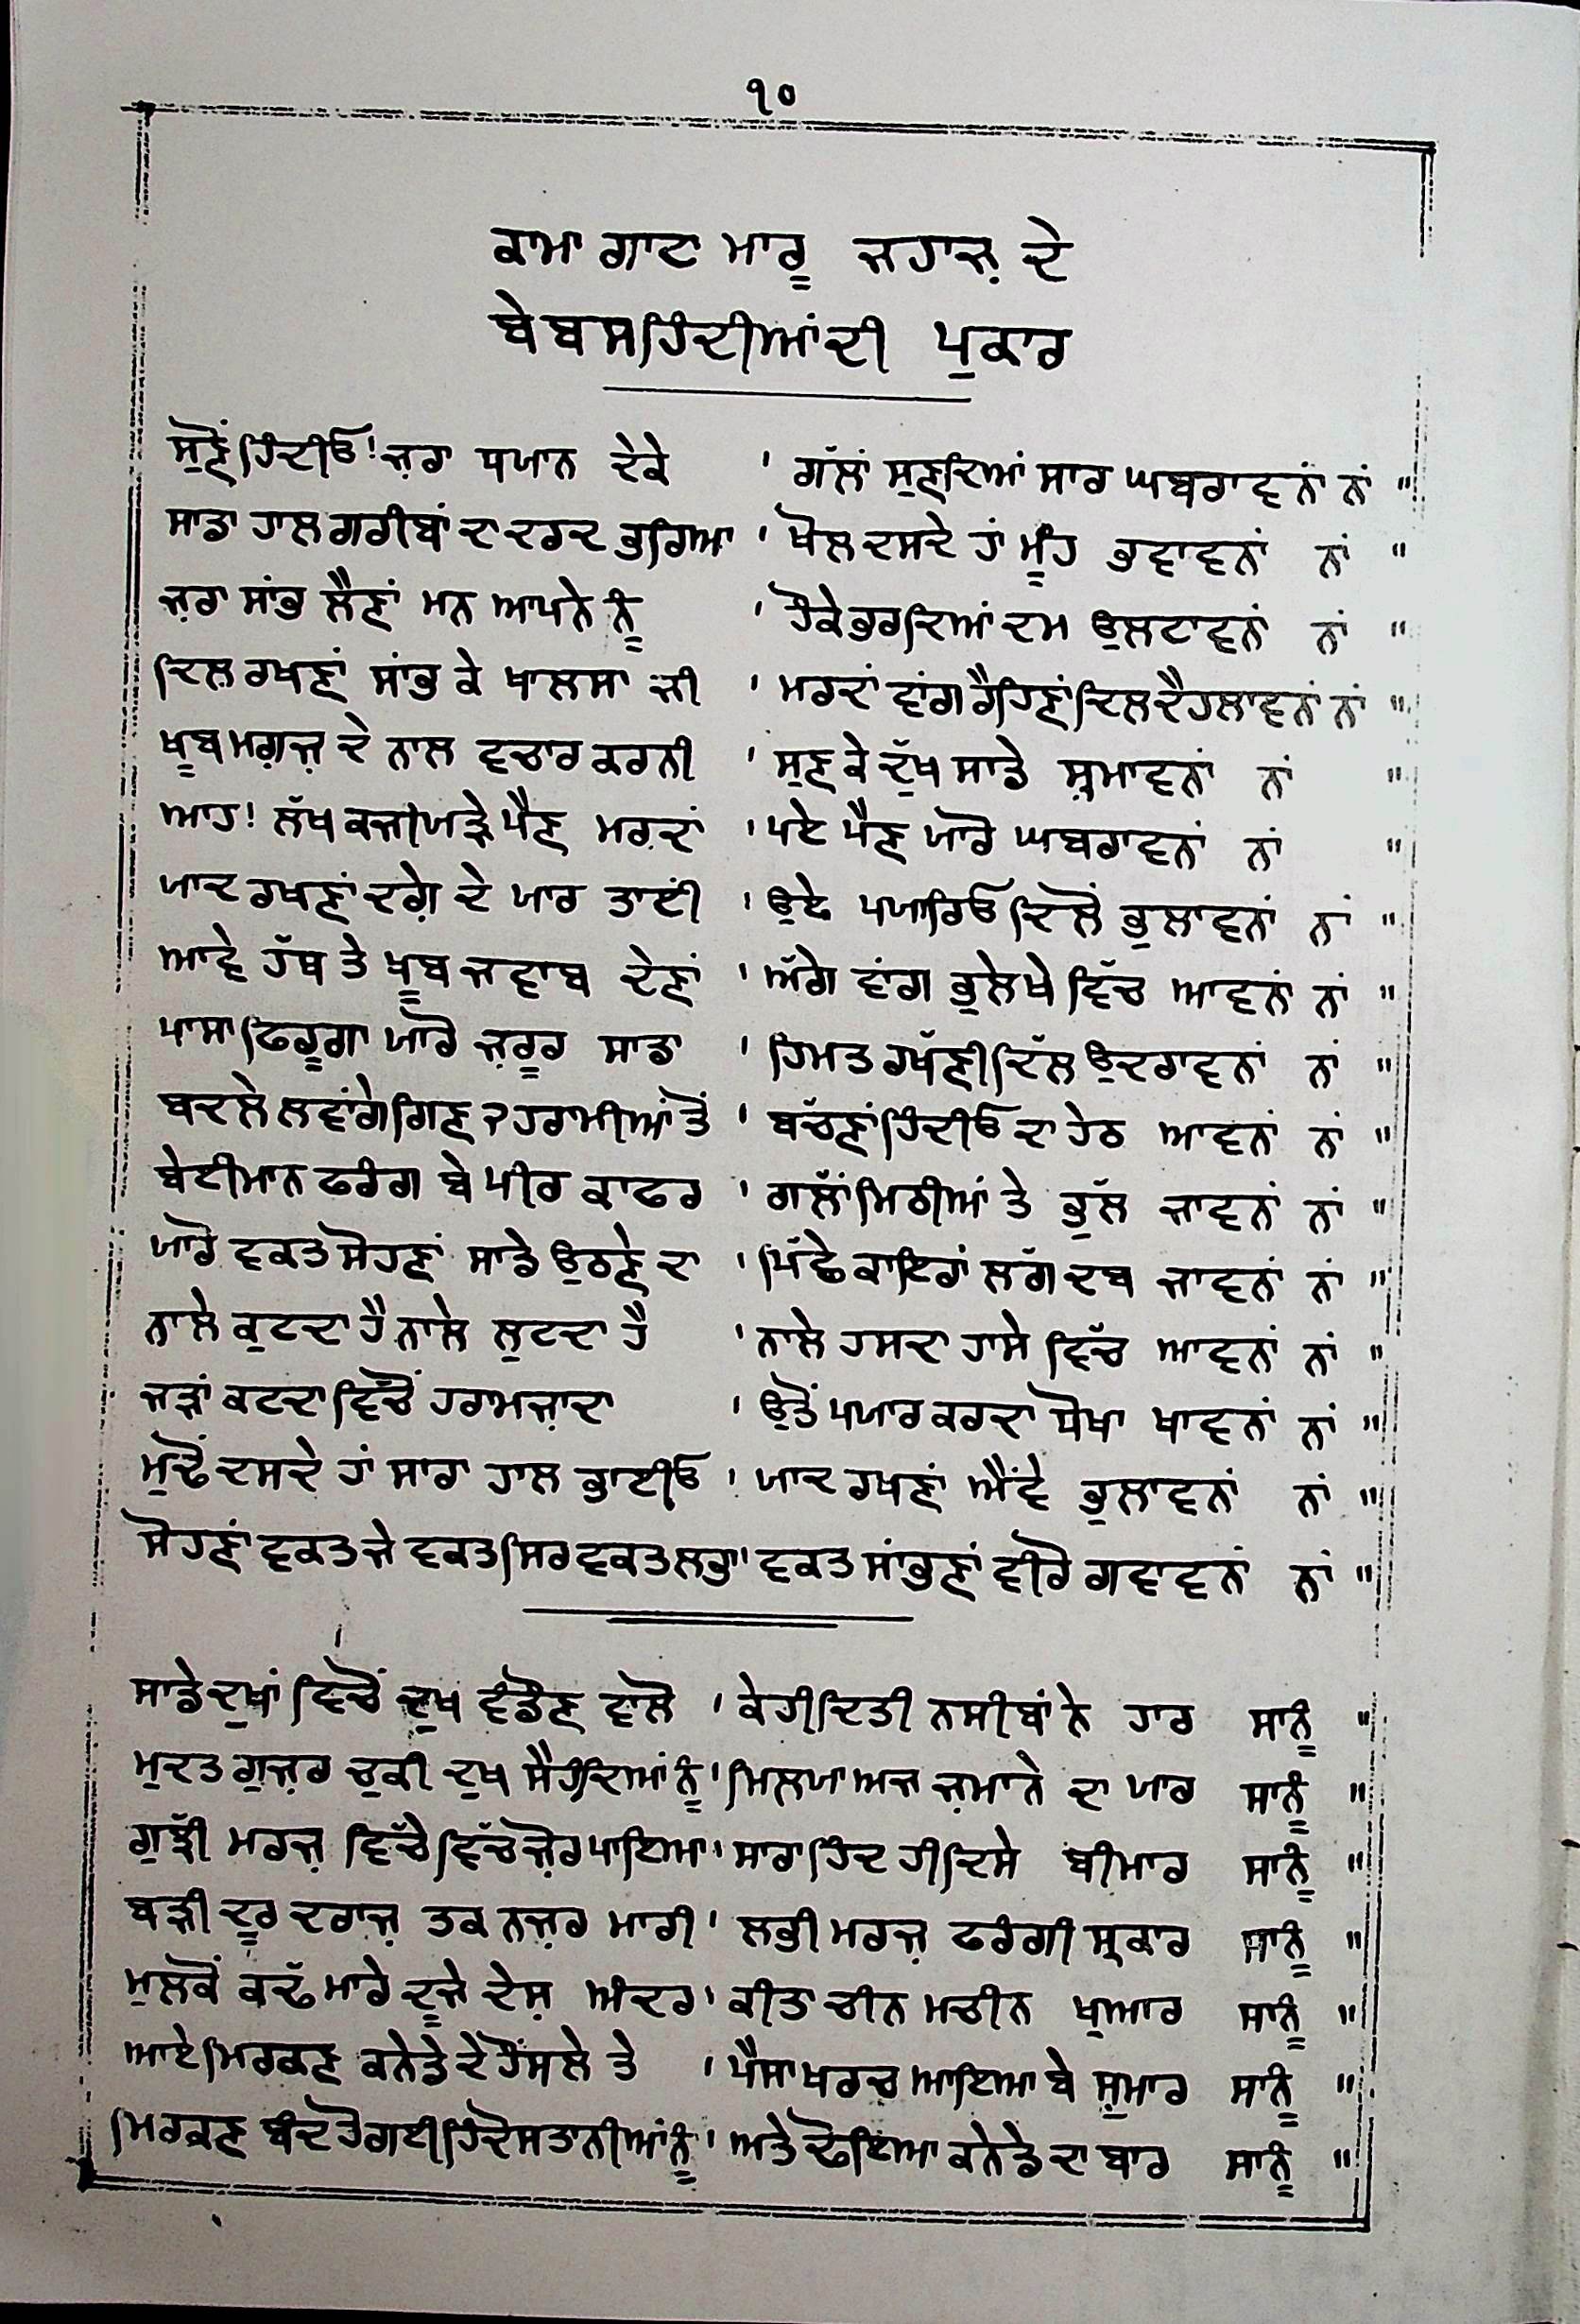 ੧੦
ਕਾਮਾ ਗਾਟਾ ਮਾਰੂ ਜਹਾਜ਼ ਦੇ
ਬੇਬਸ ਹਿੰਦੀਆਂ ਦੀ ਪੁਕਾਰ
ਸੁਣੋਂ ਹਿੰਦੀਓ! ਜ਼ਰਾ ਧਯਾਨ ਦੇਕੇ ' ਗੱਲਾਂ ਸੁਣਦਿਆਂ ਸਾਰ ਘਬਰਾਵਨਾਂ ਨਾਂ "
ਸਾਡਾ ਹਾਲ ਗਰੀਬਾਂ ਦਾ ਦਰਦ ਭਰਿਆ ' ਖੋਲ ਦਸਦੇ ਹਾਂ ਮੂੰਹ ਭਵਾਵਨਾਂ ਨਾਂ "
ਜ਼ਰਾ ਸਾਂਭ ਲੈਣਾਂ ਮਨ ਆਪਨੇ ਨੂੰ ' ਹੌਕੇ ਭਰਦਿਆਂ ਦਮ ਉਲਟਾਵਨਾਂ ਨਾਂ "
ਦਿਲ ਰਖਣਾਂ ਸਾਂਭ ਕੇ ਖਾਲਸਾ ਜੀ ' ਮਰਦਾਂ ਵਾਂਗ ਰੈਹਿਣਾਂ ਦਿਲ ਦੈਹਲਾਵਨਾਂ ਨਾਂ "
ਖੂਬ ਮਗ਼ਜ਼ ਦੇ ਨਾਲ ਵਚਾਰ ਕਰਨੀ ' ਸੁਣ ਕੇ ਦੁੱਖ ਸਾਡੇ ਸ਼੍ਰਮਾਵਨਾਂ ਨਾਂ "
ਆਹ! ਲੱਖ ਕਜੀਯੜੇ ਪੈਣ ਮਰਦਾਂ ' ਪਏ ਪੈਣ ਯਾਰੋ ਘਬਰਾਵਨਾਂ ਨਾਂ "
ਯਾਦ ਰਖਣਾਂ ਦਗ਼ੇ ਦੇ ਯਾਰ ਤਾਈਂ ' ਉਏ ਪਯਾਰਿਓ ਦਿਲੋਂ ਭੁਲਾਵਨਾਂ ਨਾਂ "
ਆਵੇ ਹੱਥ ਤੇ ਖੂਬ ਜਵਾਬ ਦੇਣਾਂ ' ਅੱਗੇ ਵਾਂਗ ਭੁਲੇਖੇ ਵਿੱਚ ਆਵਨਾਂ ਨਾਂ "
ਪਾਸਾ ਫਿਰੂਗਾ ਯਾਰੋ ਜ਼ਰੂਰ ਸਾਡਾ ' ਹਿਮਤ ਰਖੱਣੀ ਦਿੱਲ ਉਦਰਾਵਨਾਂ ਨਾਂ "
ਬਦਲੇ ਲਵਾਂਗੇ ਗਿਣ ੨ ਹਰਾਮੀਆਂ ਤੋਂ ' ਬਚੱਣਾਂ ਹਿੰਦੀਓ ਦਾ ਹੇਠ ਆਵਨਾਂ ਨਾਂ "
ਬੇਈਮਾਨ ਫਰੰਗ ਬੇ ਪੀਰ ਕਾਫਰ ' ਗਲਾਂ ਮਿਠੀਆਂ ਤੇ ਭੁੱਲ ਜਾਵਨਾਂ ਨਾਂ "
ਯਾਰੋ ਵਕਤ ਸੋਹਣਾਂ ਸਾਡੇ ਉਠਣੇ ਦਾ ' ਪਿੱਛੇ ਕਾਇਰਾਂ ਲੱਗ ਦਬ ਜਾਵਨਾਂ ਨਾਂ "
ਨਾਲੇ ਕੁਟਦਾ ਹੈ ਨਾਲੇ ਲੁਟਦਾ ਹੈ ' ਨਾਲੇ ਹਸਦਾ ਹਾਸੇ ਵਿੱਚ ਆਵਨਾਂ ਨਾਂ "
ਜੜਾਂ ਕਟਦਾ ਵਿੱਚੋਂ ਹਰਾਮਜ਼ਾਦਾ ' ਉਤੋਂ ਪਯਾਰ ਕਰਦਾ ਧੋਖਾ ਖਾਵਨਾਂ ਨਾਂ "
ਮੁਢੋਂ ਦਸਦੇ ਹਾਂ ਸਾਰਾ ਹਾਲ ਭਾਈਓ ' ਯਾਦ ਰਖਣਾਂ ਐਂਵੇ ਭੁਲਾਵਨਾਂ ਨਾਂ "
ਸੋਹਣਾਂ ਵਕਤ ਜੇ ਵਕਤ ਸਿਰ ਵਕਤ ਲਭਾ ' ਵਕਤ ਸਾਂਭਣਾਂ ਵੀਰੋ ਗਵਾਵਨਾਂ ਨਾਂ "
ਸਾਡੇ ਦੁਖਾਂ ਵਿਚੋਂ ਦੁਖ ਵੰਡੌਣ ਵਾਲੋ ' ਕੇਹੀ ਦਿਤੀ ਨਸੀਬਾਂ ਨੇ ਹਾਰ ਸਾਨੂੰ "
ਮੁਦਤ ਗੁਜ਼ਰ ਚੁਕੀ ਦੁਖ ਸੈਹੰਦਿਆਂ ਨੂੰ ' ਮਿਲਯਾ ਅਜ ਜ਼ਮਾਨੇ ਦਾ ਯਾਰ ਸਾਨੂੰ "
ਗੁਝੀੱ ਮਰਜ਼ ਵਿੱਚੇ ਵਿੱਚ ਜ਼ੋਰ ਪਾਇਆ ' ਸਾਰਾ ਹਿੰਦ ਹੀ ਦਿਸੇ ਬੀਮਾਰ ਸਾਨੂੰ "
ਬੜੀ ਦੂਰ ਦਰਾਜ਼ ਤਕ ਨਜ਼ਰ ਮਾਰੀ ' ਲਭੀ ਮਰਜ਼ ਫਰੰਗੀ ਸ੍ਰਕਾਰ ਸਾਨੂੰ "
ਮੁਲਕੋਂ ਕਢੱ ਮਾਰੇ ਦੂਜੇ ਦੇਸ਼ ਅੰਦਰ ' ਕੀਤਾ ਚੀਨ ਮਚੀਨ ਖੁਆਰ ਸਾਨੂੰ "
ਆਏ ਮਿਰਕਣ ਕਨੇਡੇ ਦੇ ਹੌਂਸਲੇ ਤੇ ' ਪੈਸਾ ਖਰਚ ਆਇਆ ਬੇ ਸ਼ੁਮਾਰ ਸਾਨੂੰ "
ਮਿਰਕਣ ਬੰਦ ਹੋ ਗਈ ਹਿੰਦੋਸਤਾਨੀਆਂ ਨੂੰ ' ਅਤੇ ਢੋਇਆ ਕਨੇਡੇ ਦਾ ਬਾਰ ਸਾਨੂੰ "